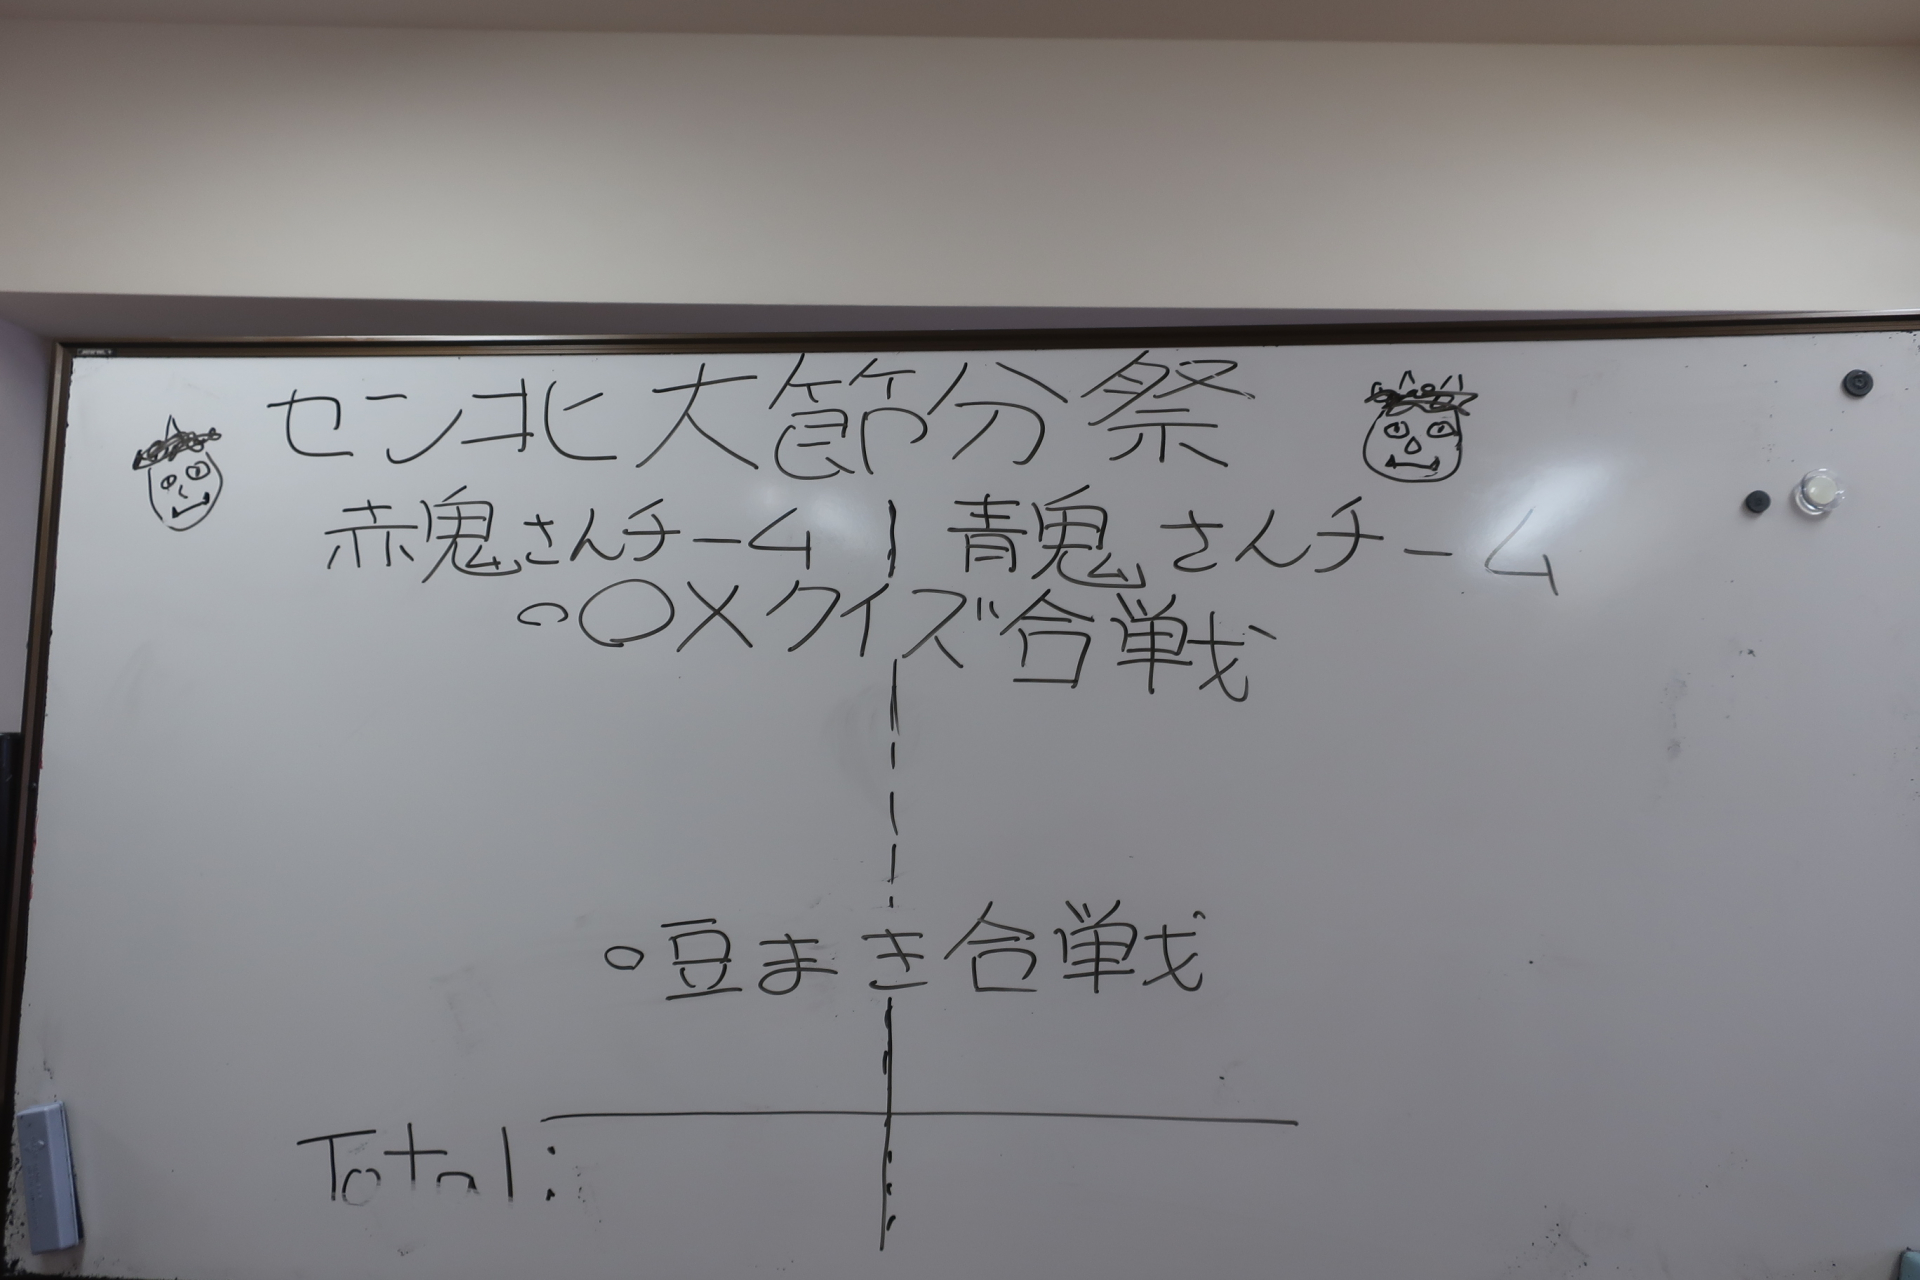 セン北大節分祭
赤鬼さんチーム | 青鬼さんチーム
○○×クイズ合戦
○豆まき合戦
Total: